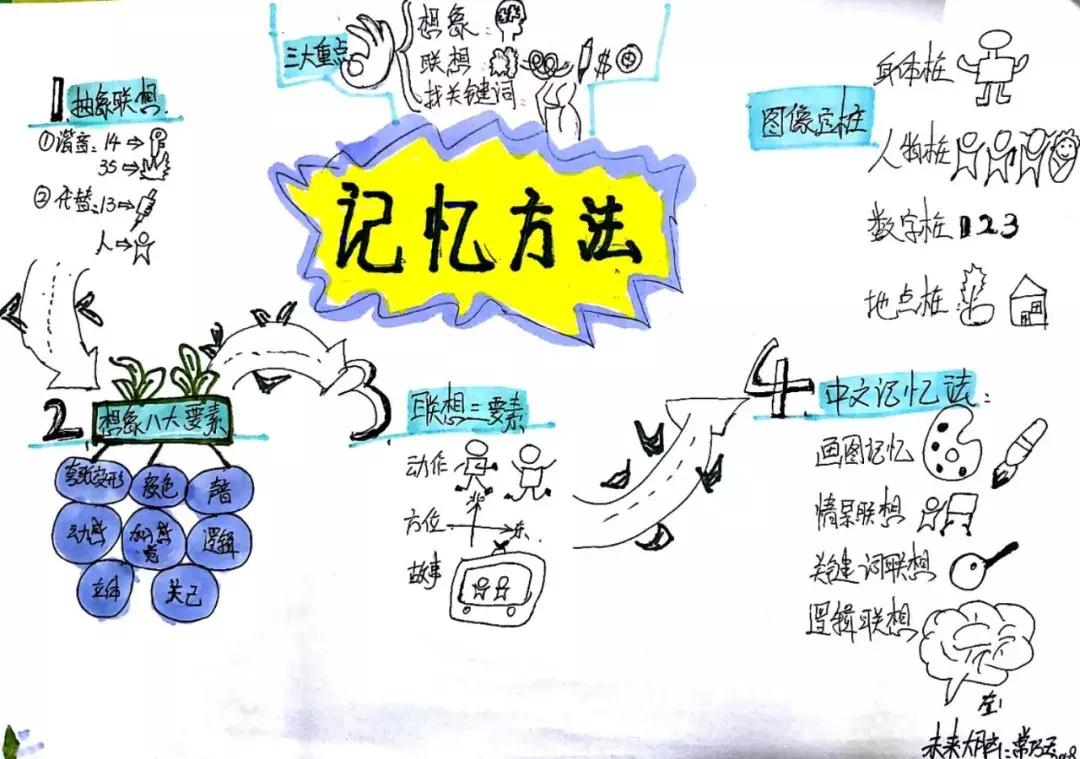 记忆方法
三大重点
想象:
联想
找关键词:
1 抽象联想
①谐音:14→
35→
②代替:13→
人→
2 想象八大要素
夸张变形
变色
声音
动感
加感觉
逻辑
立体
关己
3 联想三要素
动作
方位
北
东
故事
4 中文记忆法:
画图记忆
情景联想
关键词联想
逻辑联想
图像定桩
身体桩
人物桩
数字桩 123
地点桩
未来大脑: